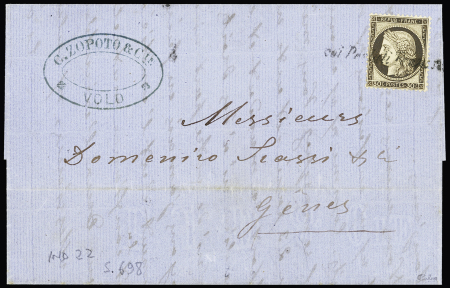 C. ZOPOTO & CIE
VOLO
REPUB. FRANC.
30c POSTES 30c
Messieurs
Domenico Scassi & Ci
Gênes
IND 22
S. 698